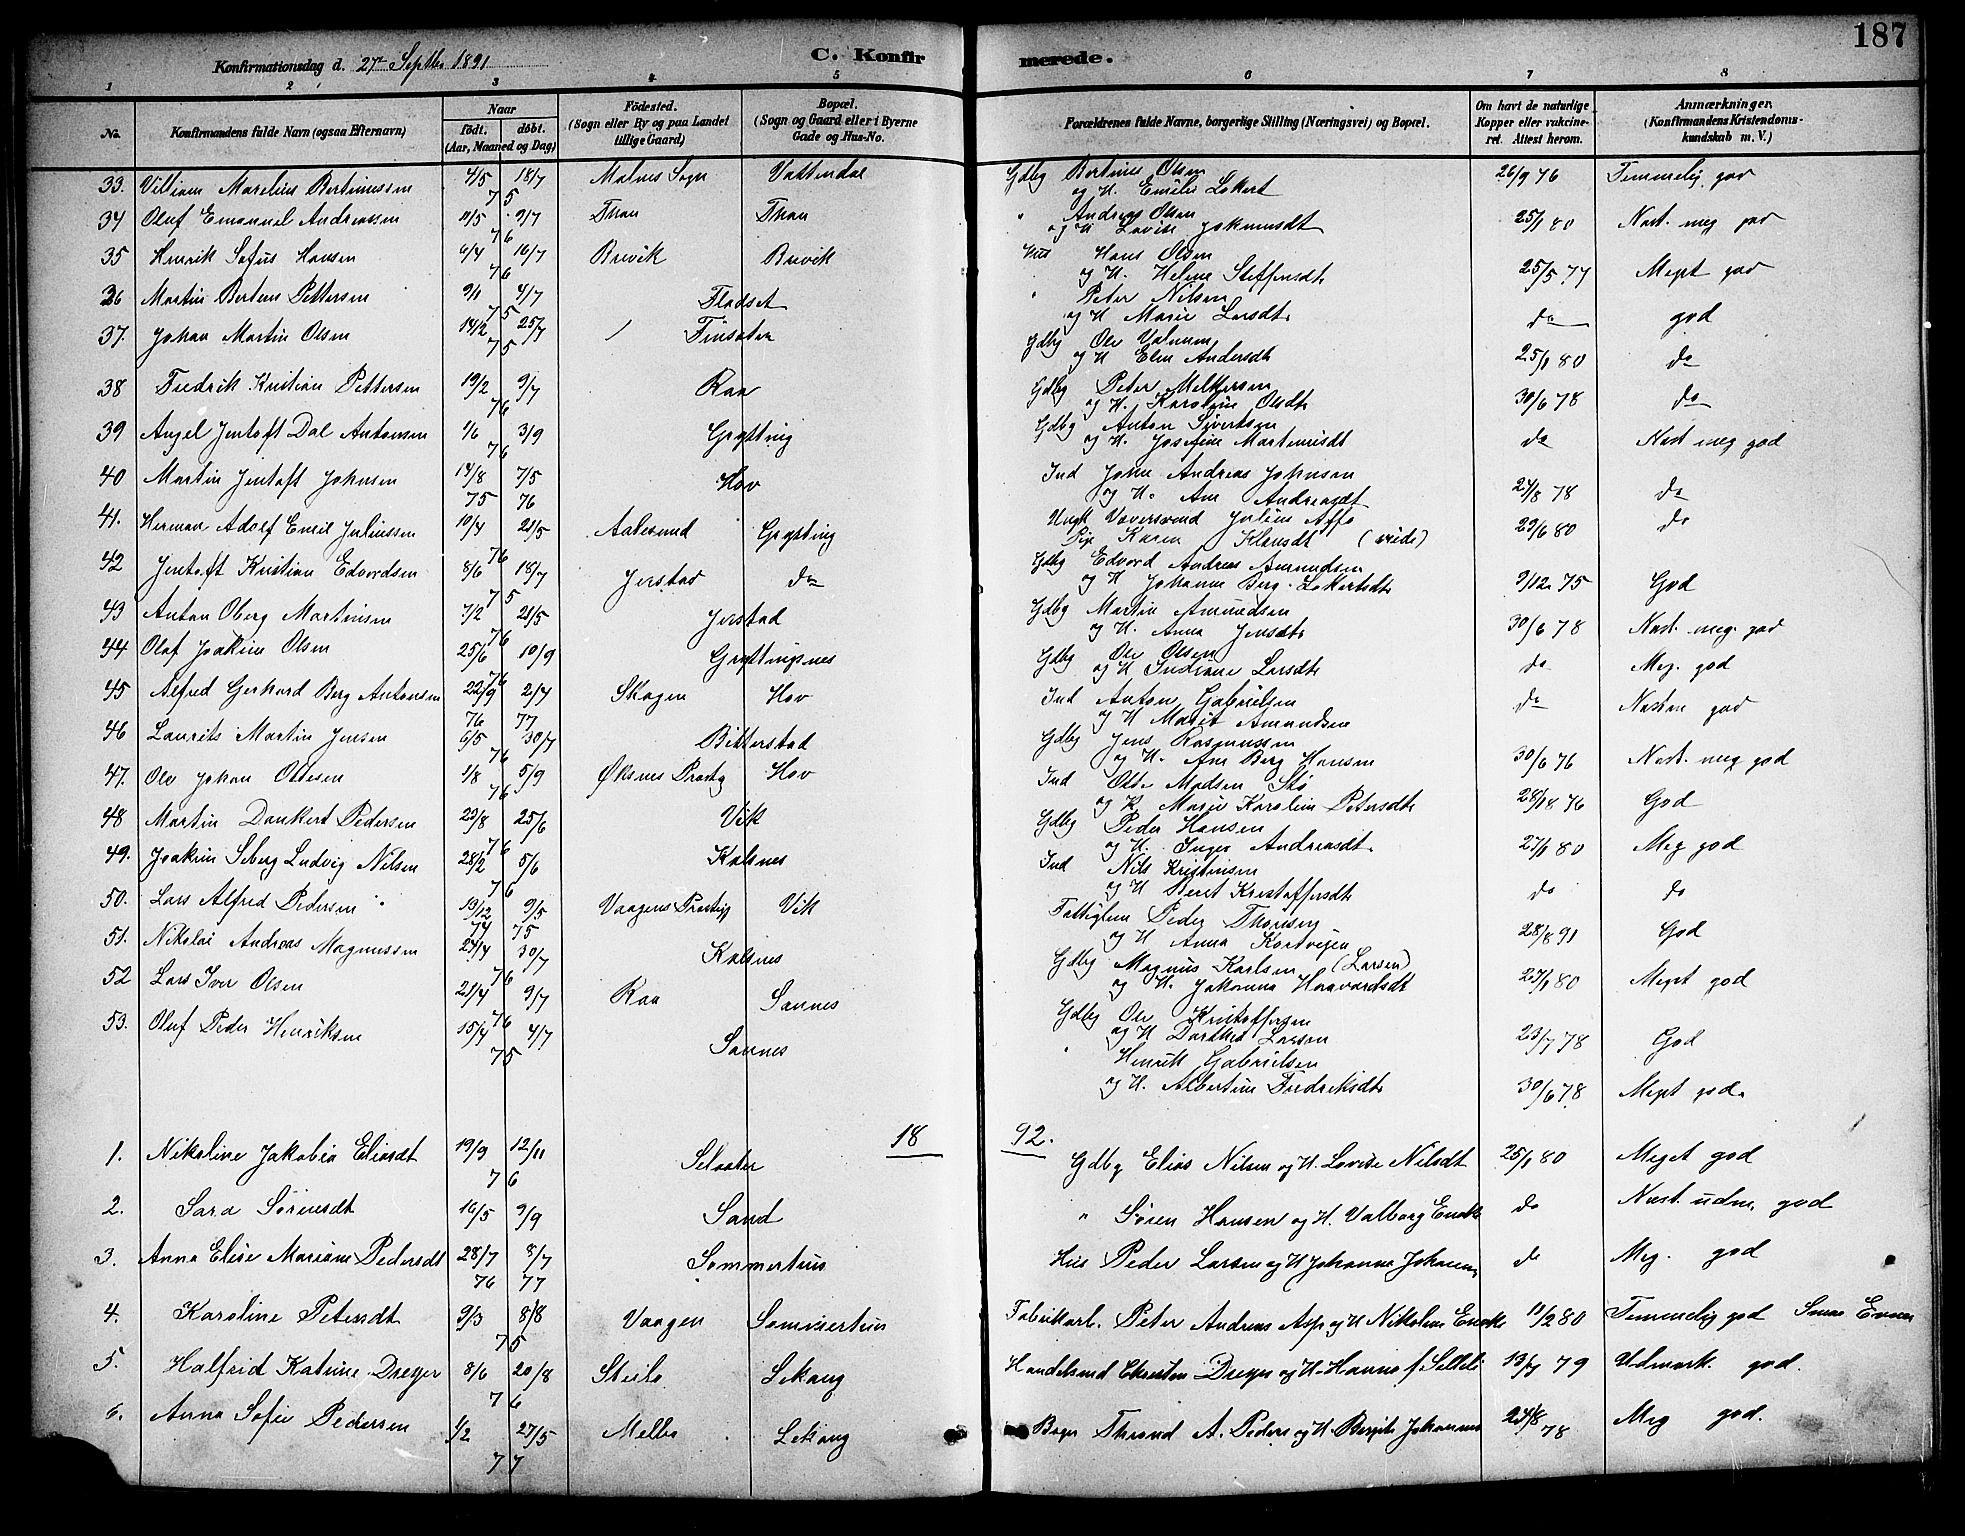 187
Konfirmationsdag d. 27de Septbr 1891 C. Konfirmerede.
1 2 3 4 5 6 7 8
No. Konfirmandens fulde Navn (ogsaa Efternavn) Naar født. døbt. (Aar, Maaned og Dag) Fødested. (Sogn eller By og paa Landet tillige Gaard) Bopæl. (Sogn og Gaard eller i Byerne Gade og Hus-No. Forældrenes fulde Navne, borgerlige Stilling (Næringsvei) og Bopæl. Om havt de naturlige Kopper eller vakcineret. Attest herom. Anmærkninger. (Konfirmandens Kristendomskundskab m. V.)
33. Villiam Marelius Bertinussen 4/5 18/7 75 Malnes Sogn Vattendal Gdbg Bertinus Olsen og H. Emilie Lokert 26/9 76 Temmelig god
34 Oluf Emanuel Andreassen 11/5 9/7 76 Thon Thon " Andreas Olsen og H Lovise Johannesdt 25/1 80 Næst. meg god
35 Henrik Sofus Hansen 6/4 16/7 76 Brevik Brevik Hus Hans Olsen og H. Helene Steffensdtr 25/5 77 Meget god
36 Martin Berteus Pettersen 9/1 4/7 75 Fladset " Peter Nilsen og H Marie Larsdtr do god
37. Johan Martin Olsen 14/2 25/7 75 Finsæter Gdbg Ole Valnum og H Elen Andersdtr 25/1 80 do
38 Fredrik Kristian Pettersen 19/2 9/7 76 Raa Gdbg Peter Melkersen og H. Karoline Olsdtr 30/6 78 do
39 Angel Jentoft Dal Antonsen 1/6 3/9 76 Grytting Gdbg Anton Sivertsen og H. Josefine Martinusdt do Næst meg god
40 Martin Jentoft Johnsen 14/8 75 7/5 76 Hov Ind John Andreas Johnsen og H. Ane Andreasdt 24/8 78 do
41. Herman Adolf Emil Juliussen 10/4 21/5 76 Aalesund Grytting Ungk Julius Pige Karen Klausdt 29/6 80 do
42 Jentoft Kristian Edvardsen 8/6 18/7 75 Jerstad do Gdbg Edvard Andreas Amundsen og H Johanna Berg Lokertsdtr 9/12 75 God
43 Anton Oberg Martinsen 7/2 21/5 76 Jerstad Gdbg Martin Amundsen og H. Anna Jensdtr 30/6 78 Næst. meg. god
44 Olaf Joakim Olsen 25/6 10/9 76 Gryttingnes Gdbg Ole Olsen og H Indiane Larsdtr do Meg. god
45 Alfred Gerhard Berg Antonsen 22/9 76 2/4 77 Skogen Hov Ind Anton Gabrielsen og H Marit Amundsen do Næsten god
46 Laurits Martin Jensen 6/5 30/7 76 Bitterstad Gdbg Jens Rasmussen og H. Ane Berg Hansen 30/6 76 Næst. meg god
47. Ole Johan Olsen 1/8 5/9 76 Øksnes Præstg Hov Ind Madsen Stø og H. Marie Karoline Petersdtr 28/8 76 God
48 Martin Dankert Pedersen 23/8 25/6 76 Vik Gdbg Peder Hansen og H. Inger Andreasdt. 27/1 80 Meg god
49. Joakim Seberg Ludvig Nilsen 28/2 5/6 76 Kalsnes Ind Nils Kristensen og H Beret Kristoffersdtr do do
50. Lars Alfred Pedersen 19/12 74 9/5 75 Vaagens Præstgj Vik Fattiglem Peder Thomsen og H Anna 28/8 91 God
51. Nikolai Andreas Magnussen 24/4 30/7 76 Kalsnes Gdbg Magnus Karlsen (Larsen) og H. Jakobina Haavardsdt 27/1 80 Meget god
52 Lars Iver Olsen 21/4 9/7 76 Raa Sannes Gdbg Ole Kristoffersen og H Dorthea Larsen 23/7 78 God
53. Oluf Peder Henriksen 15/4 4/7 75 Sannes " Henrik Gabrielsen og H. Albertine Fredriksdtr 30/6 78 Meget god.
18 92.
1. Nikoline Jakobia Eliasdt 19/9 12/11 76 Selaater Gdbg Elias Nilsen og H. Lovise Nilsdt 25/1 80 Meget god
2. Sara Sørensdt 16/5 9/9 Sand " Søren Hansen og H. Valborg do Næst. udm. god
3. Anna Elise Mariane Pedersdt 28/7 76 8/7 77 Sommertun Hus Peder Larsen og H Johanna do Meg. god
4. Karoline Petersdt 9/3 8/8 75 Vaagen Sommertun Fabrikarb. Peter Andreas Asp og H Nikoline 11/2 80 Temmelig god
5. Halfrid Katrine Dreyer 8/6 20/8 76 Steilo Lekang Handelsmd Christen Dreyer og H. Hanna f. 13/7 79 Udmærk. god.
6. Anna Sofie Pedersen 1/2 27/5 77 Melbo Lekang Thrond A. Peders og H. Bergite 24/8 78 Meg god.